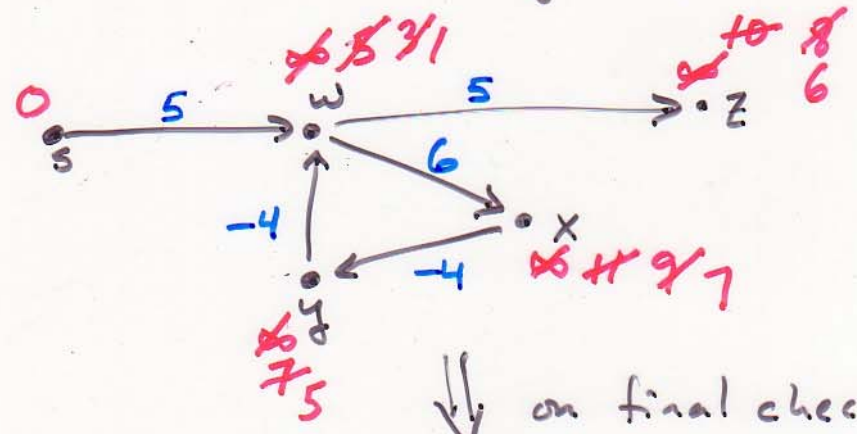 ∞ 5 3 1
∞ 10 8
6
0
5
w
5
z
s
6
-4
x
-4
∞ 11 9 7
y
∞
7 5
⇓ on final chec